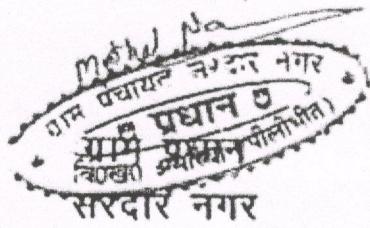 ग्राम पंचायत सरदार नगर
प्रधान
ग्राम प्रधान
पीलीभीत)
सरदार नगर